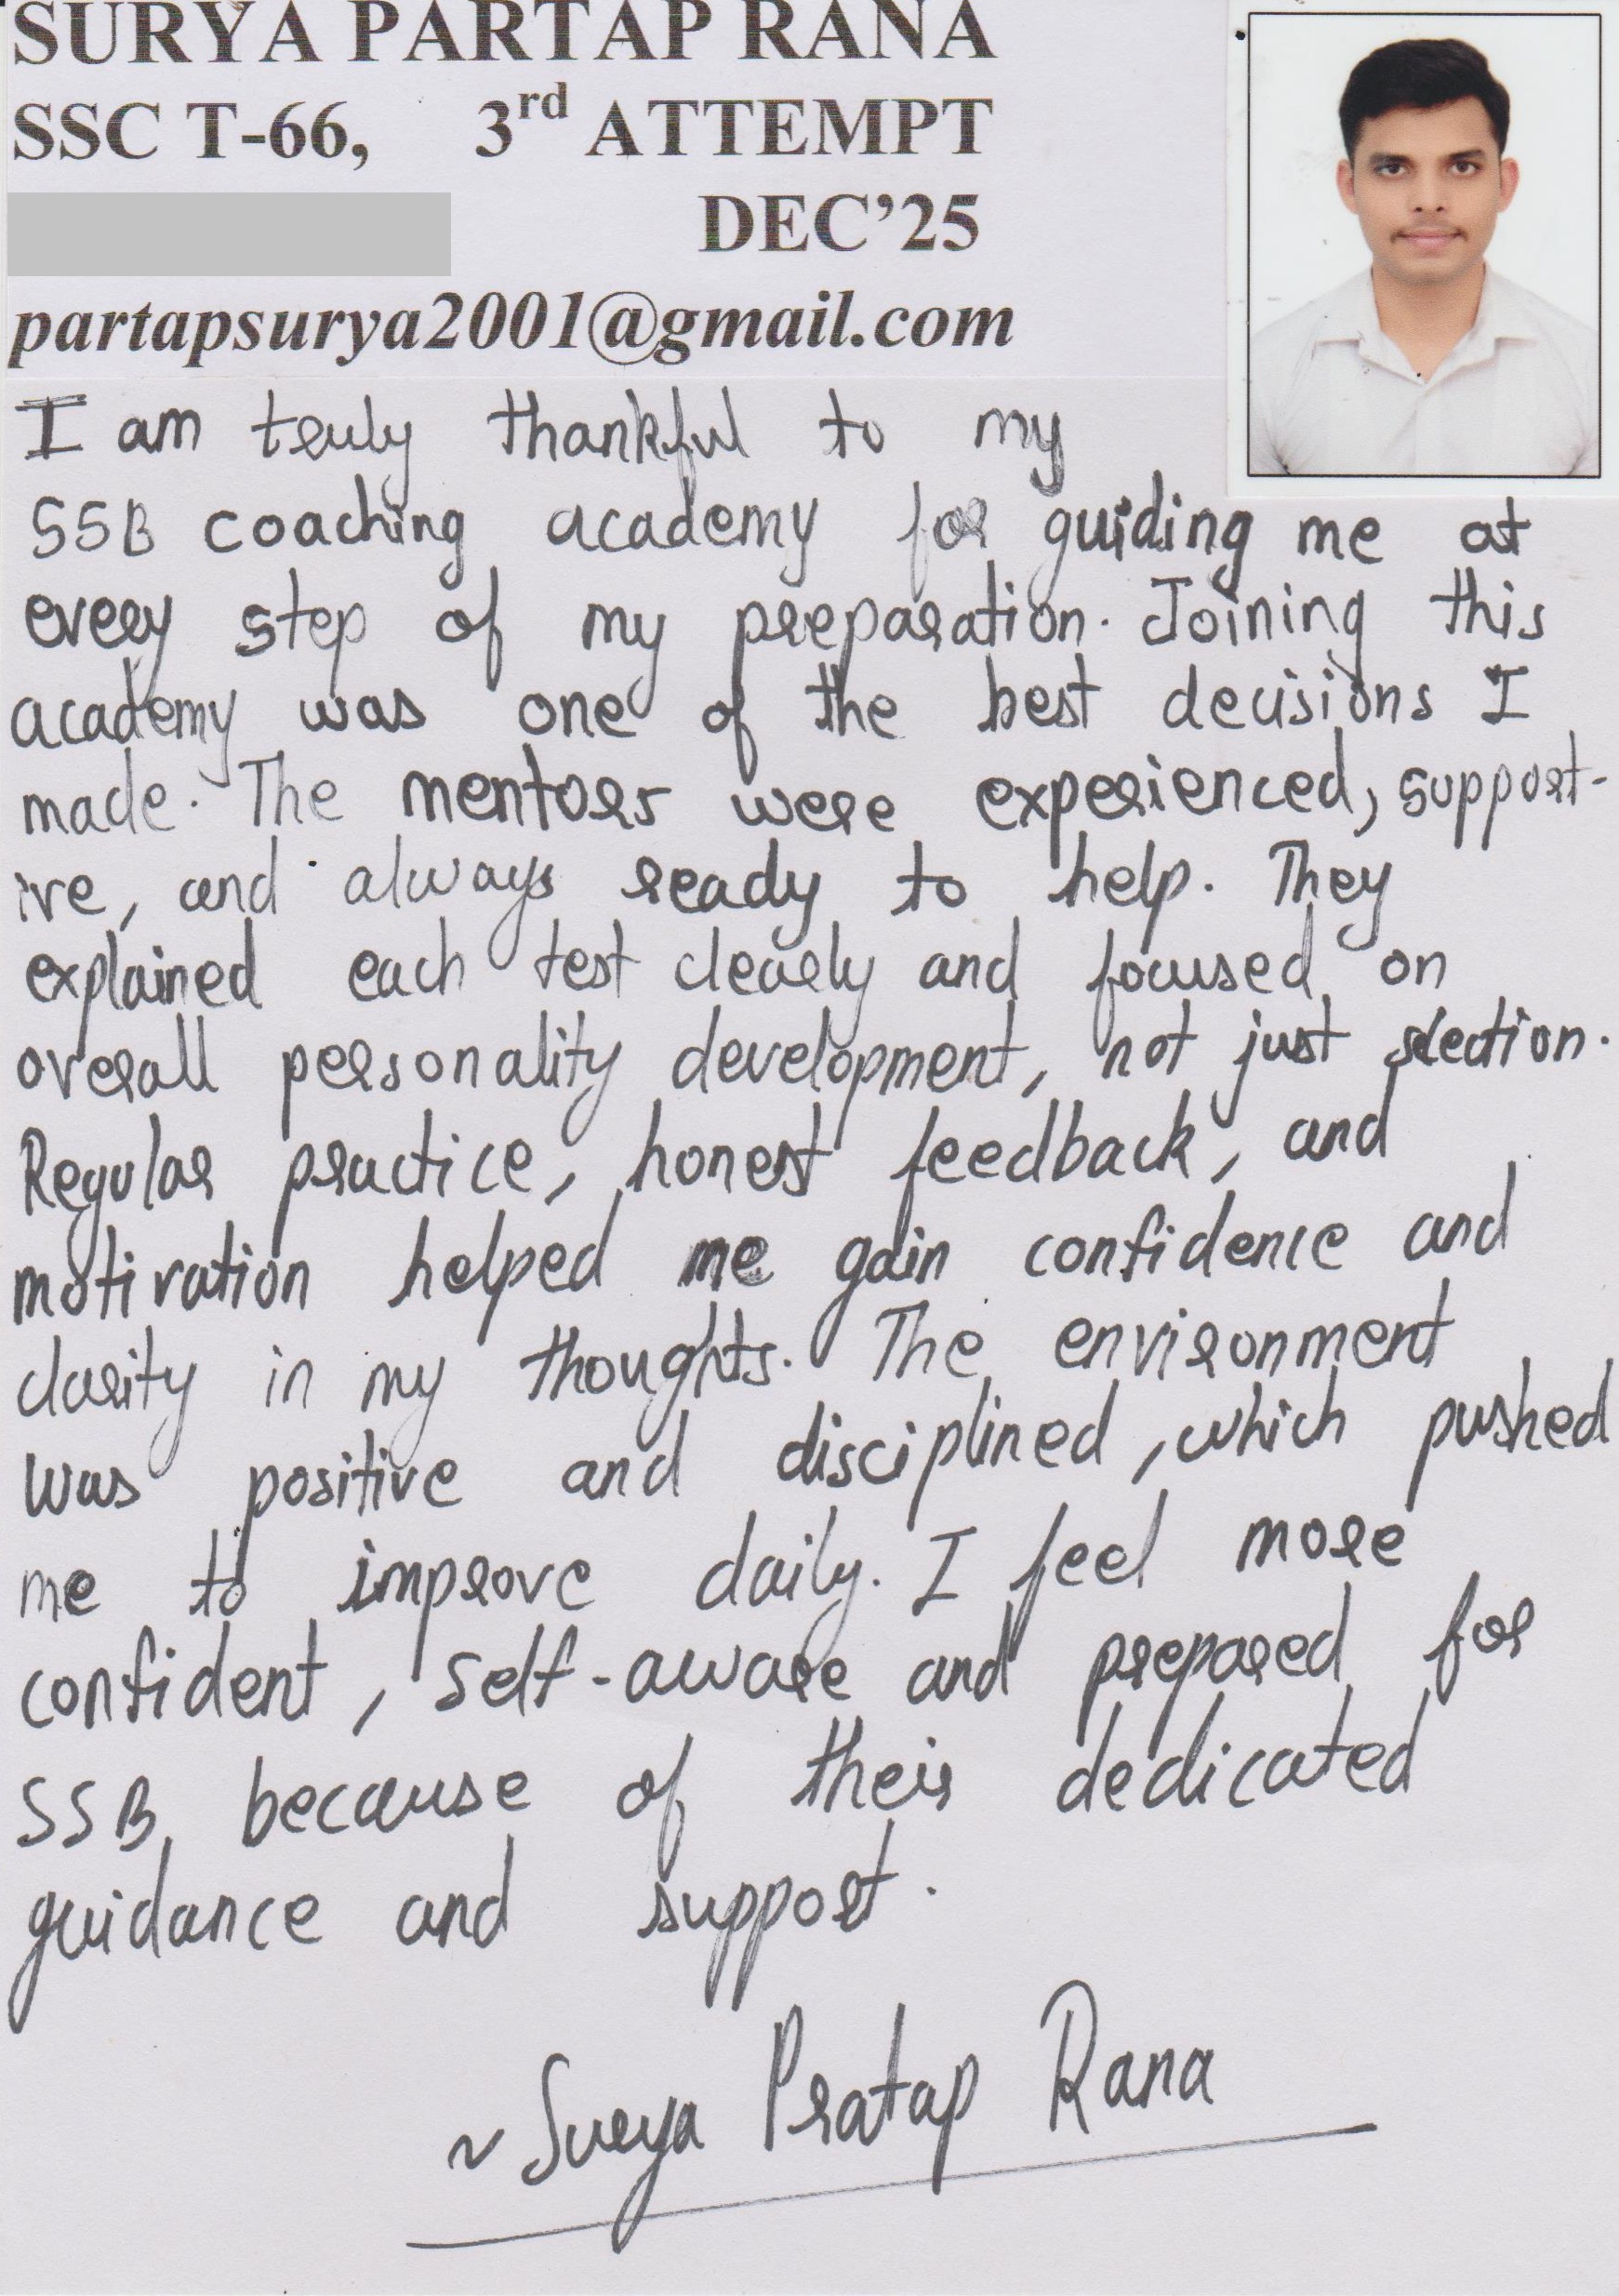 SURYA PARTAP RANA
SSC T-66, 3rd ATTEMPT
DEC'25
partapsurya2001@gmail.com
I am truly thankful to my
SSB coaching academy for guiding me at
every step of my preparation. Joining this
academy was one of the best decisions I
made. The mentors were experienced, support-
ive, and always ready to help. They
explained each test clearly and focused on
overall personality development, not just selection.
Regular practice, honest feedback, and
motivation helped me gain confidence and
clarity in my thoughts. The environment
was positive and disciplined, which pushed
me to improve daily. I feel more
confident, self-aware and prepared for
SSB because of their dedicated
guidance and support.
~ Surya Pratap Rana